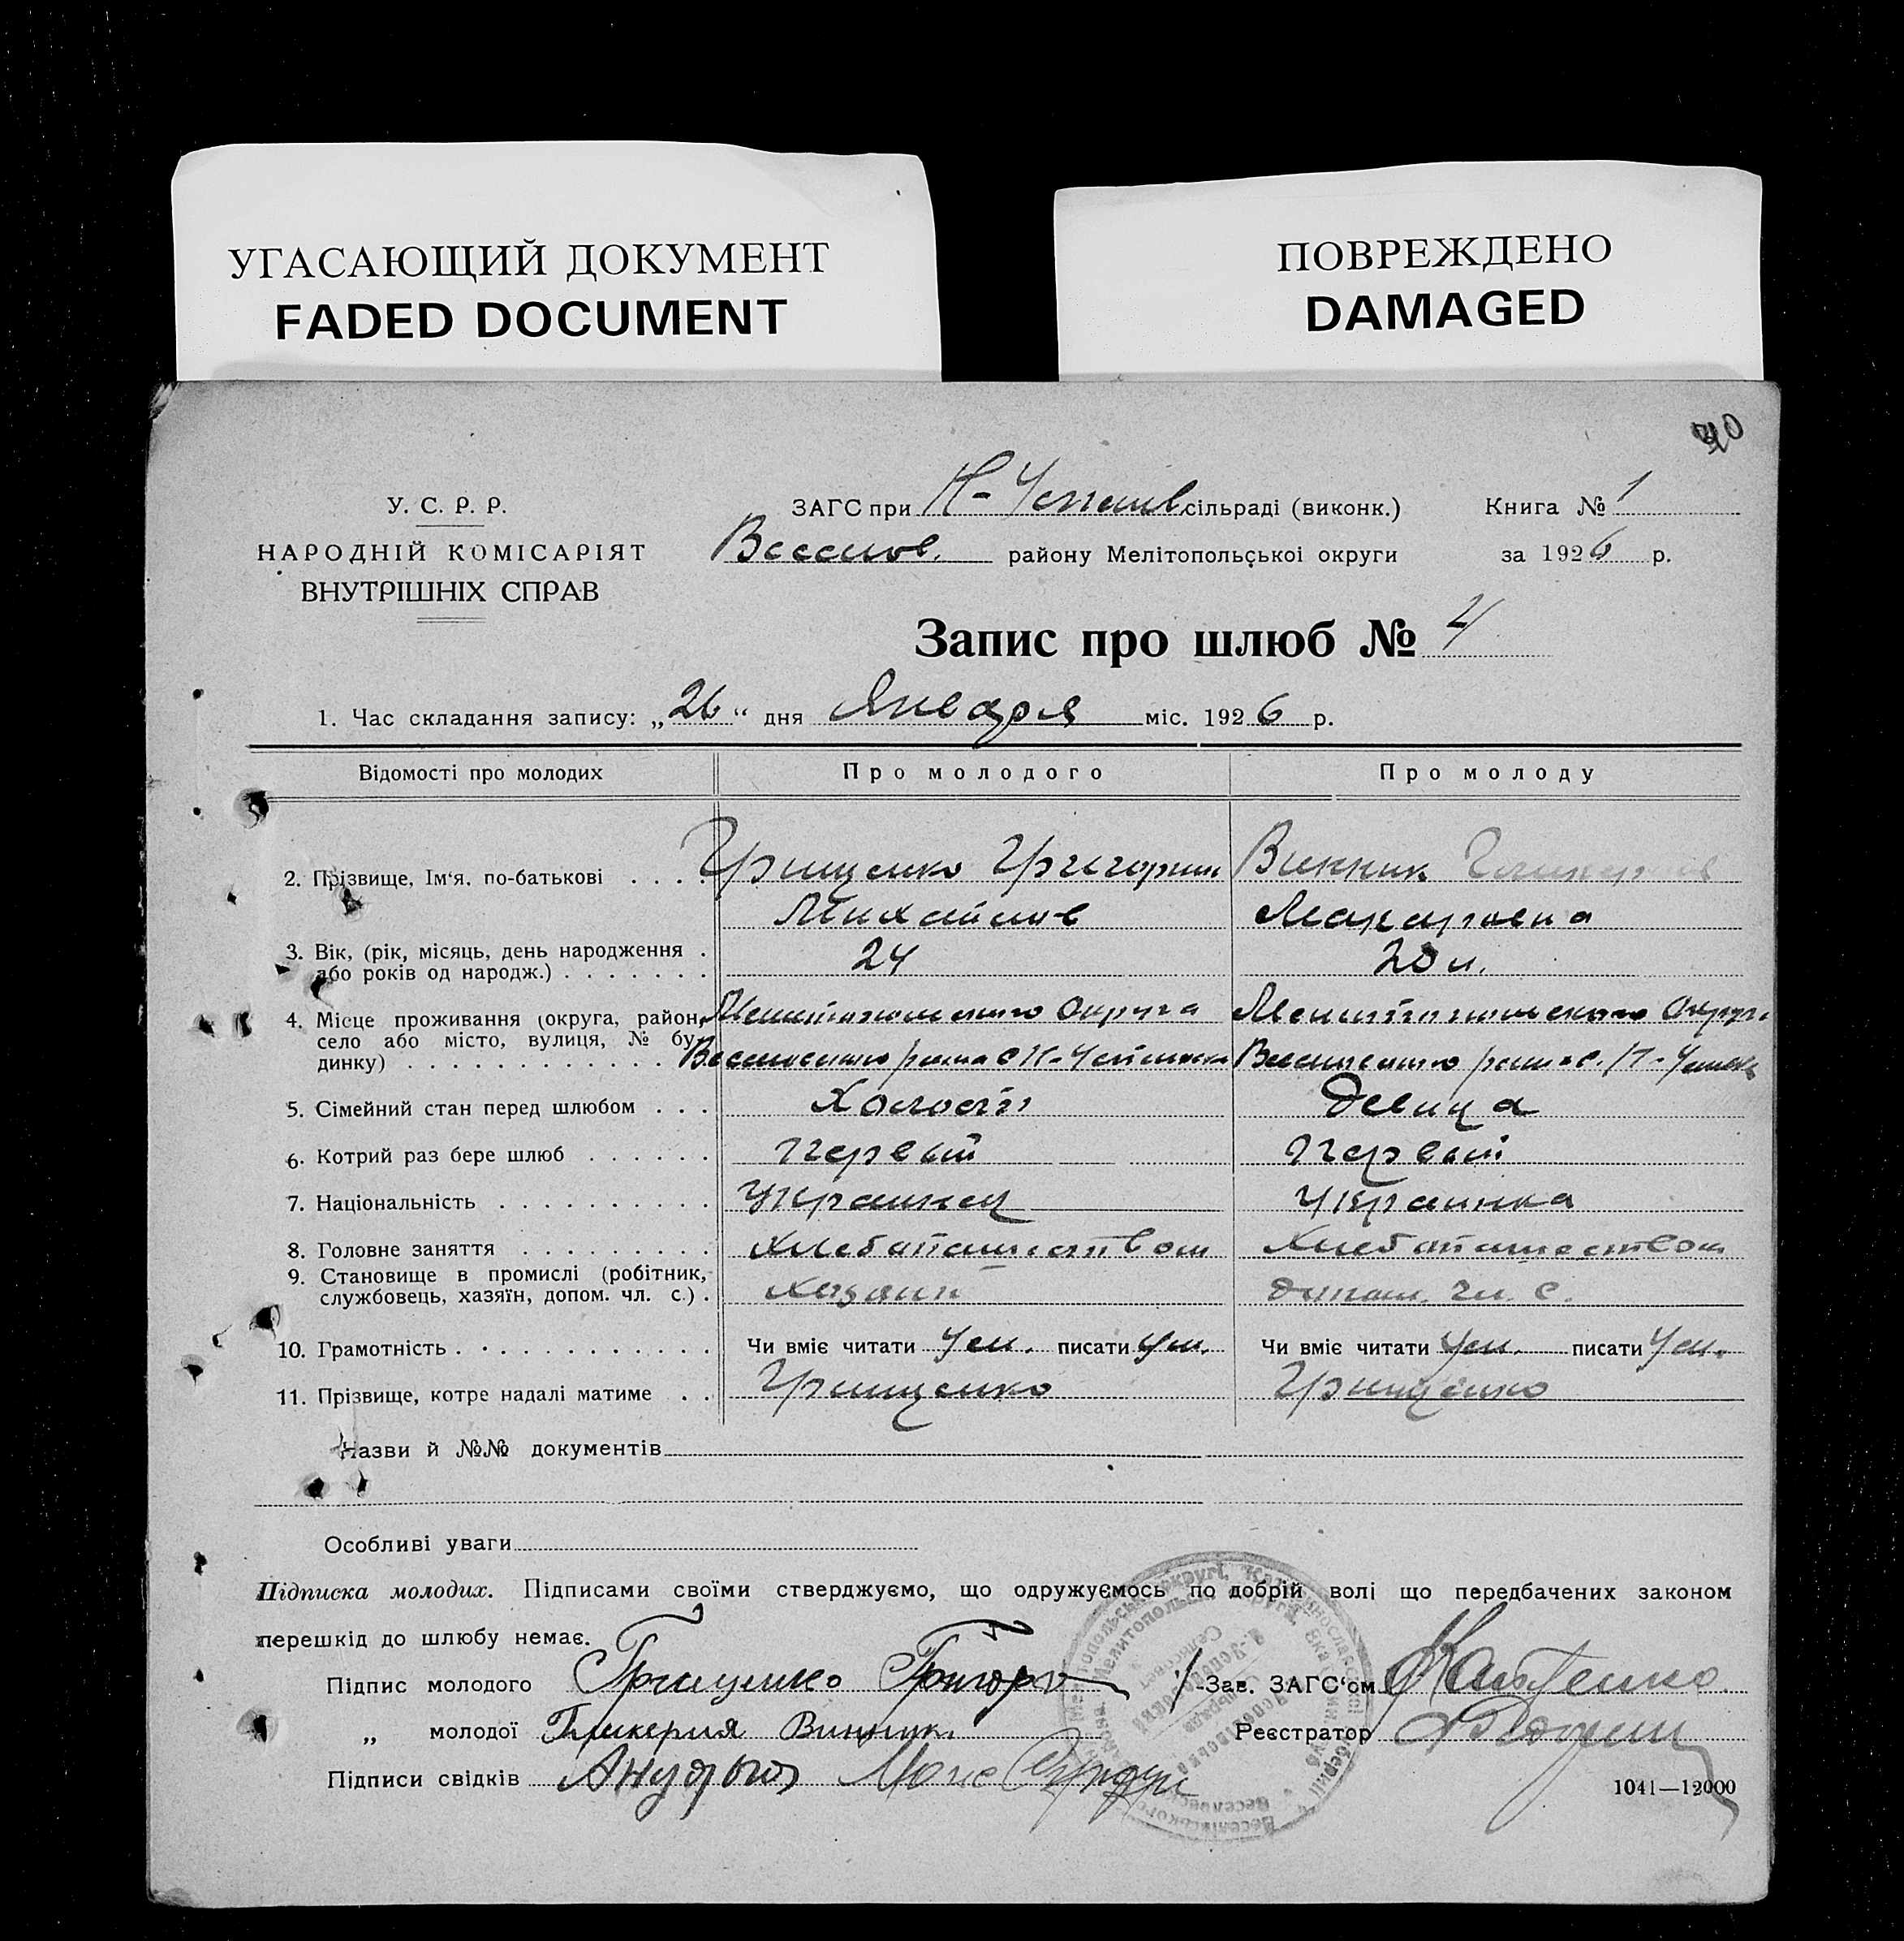 УГАСАЮЩИЙ ДОКУМЕНТ
FADED DOCUMENT
ПОВРЕЖДЕНО
DAMAGED
У. С. Р. Р.
НАРОДНІЙ КОМІСАРІЯТ
ВНУТРІШНІХ СПРАВ
ЗАГС при Н- сільраді (виконк.)
Веселов. району Мелітопольської округи
Книга № 1
за 1926 р.
Запис про шлюб № 4
1. Час складання запису: „26“ дня Января міс. 1926 р.
Відомості про молодих Про молодого Про молоду
2. Прізвище, Ім‘я, по-батькові . . . . Грищенко Григорий Винник
Михайлов Макаровна
3. Вік, (рік, місяць, день народження . 24 20 л.
або років од народж.) . . . . . . .
4. Місце проживання (округа, район, Мелитопольского Округа Мелитопольского Округа
село або місто, вулиця, № бу-
динку) . . . . . . . . . . . . . Веселовского района с Н- Веселовского
5. Сімейний стан перед шлюбом . . . Холост Девица
6. Котрий раз бере шлюб . . . . . . Первый Первый
7. Національність . . . . . . . . . . Украинец Украинка
8. Головне заняття . . . . . . . . . Хлебопашеством Хлебопашеством
9. Становище в промислі (робітник,
службовець, хазяїн, допом. чл. с.) . Хозяин допом. чл. с.
10. Грамотність . . . . . . . . . . . . Чи вміє читати Ум. писати ум. Чи вміє читати Ум. писати Ум.
11. Прізвище, котре надалі матиме . . Грищенко Грищенко
Назви й №№ документів
Особливі уваги
Підписка молодих. Підписами своїми стверджуємо, що одружуємось по добрій волі що передбачених законом
перешкід до шлюбу немає.
Підпис молодого Грищенко Григор Зав. ЗАГС‘ом
„ молодої Гликерия Винник. Реєстратор
Підписи свідків
1041—12000